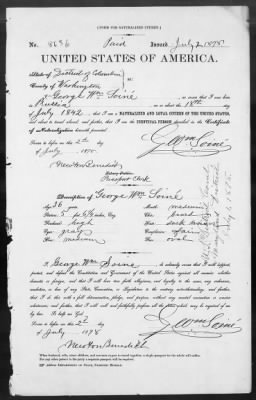 [FORM FOR NATURALIZED CITIZEN.]
No. 8636 Paid Issued July 2 1878
UNITED STATES OF AMERICA.
State of District of Columbia
County of Washington
I, George Wm Soiné, do swear that I was born
in Prussia, on or about the 18th day
of July 1842; that I am a NATURALIZED AND LOYAL CITIZEN OF THE UNITED STATES,
and about to travel abroad; and further, that I am the IDENTICAL PERSON described in the Certificate
of Naturalization herewith presented.
Sworn to before me this 2d
day
of July 1878.
G Wm Soiné
Newton Benedict
Passport Clerk
Description of George Wm Soiné
Age: 36 years
Stature: 5 feet inches, Eng.
Forehead: high
Eyes: gray
Nose: medium
Mouth: medium
Chin: beard
Hair: dark
Complexion: fair
Face: oval
I, George Wm Soiné, do solemnly swear that I will support,
protect, and defend the Constitution and Government of the United States against all enemies, whether
domestic or foreign; and that I will bear true faith, allegiance, and loyalty to the same, any ordinance,
resolution, or law of any State, Convention, or Legislature to the contrary notwithstanding; and further,
that I do this with a full determination, pledge, and purpose, without any mental reservation or evasion
whatsoever; and further, that I will well and faithfully perform all the duties which may be required of me
by law. So help me God.
Sworn to before me this 2d
day
of July 1878
G Wm Soiné
Newton Benedict